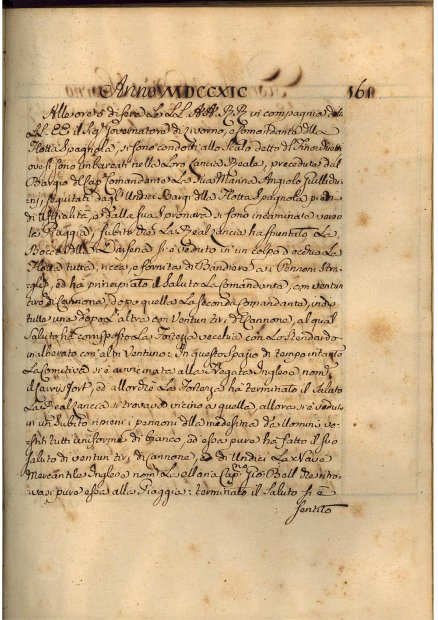 Anno MDCCXIC 160
Alle ore 21 di sera Le LL. AA. RR. in compagnia del
LL. EE. il Sig. Governatore di Livorno, e Comandante della
Flotta Spagnola, si sono condotti allo Scalo detto di
ove si sono imbarcati nella Loro Lancia Reale, preceduta dal
Bargio del Cap. Comandante La Sua Marina Angiolo
seguitata dagli Undici Bargi della Flotta Spagnola pieni
di Ufizialità, e dalla Sua Ivornara si sono incamminati verso
le Piaggia; Subito che La Real Lancia ha spuntato La
Bocca della Darsena si è veduto in un colpo d'occhio La
Flotta tutta, ricca, e fornita di Bandiere, e Pennoni
ed ha principiato il Saluto La Comandante, con ventun
tiro di Cannone, dopo quella La Seconda Comandante, indi
tutte una dopo L'altra con Ventun tiri di Cannone, al qual
Saluto ha corrisposto La Fortezza vecchia con Lo Stendardo
inalberato con altri Ventuno: In questo spazio di tempo intanto
La Comitiva si è avvicinata alla Fregata Inglese nom.
il ed allorchè La Fortezza ha terminato il Saluto
La Real Lancia si trovava vicino a quella, allora si è veduto
in un subito ripieni i pennoni della medesima da Uomini ve-
stiti tutti uniforme di bianco, ed essa pure ha fatto il suo
Saluto di ventun tiri di Cannone, e di Undici La Nave
Mercantile Inglese nom. La Cap.no Gio: Bell
pure essa alla Piaggia: terminato il Saluto si è
sentito